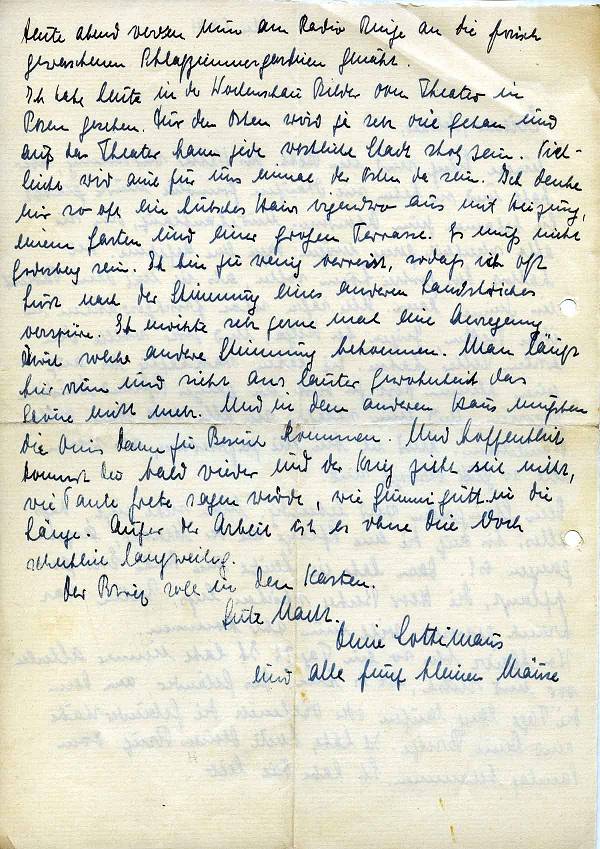 Heute abend werden nun am Radio Ringe an die frisch
gewaschenen Schlafzimmergardinen genäht.
Ich habe heute in der Wochenschau Bilder vom Theater in
Posen gesehen. Für den Osten wird ja sehr viel getan und
auf das Theater kann jede westliche Stadt stolz sein. Viel-
leicht wird auch für uns einmal der Osten da sein. Ich denke
mir so oft ein hübsches Haus irgendwo aus mit Heizung,
einem Garten und einer großen Terrasse. Es muß nicht
Godesberg sein. Ich bin zu wenig verreist, sodaß ich oft
Lust nach der Stimmung eines anderen Landstriches
verspüre. Ich möchte sehr gerne mal eine Anregung
durch solche andere Stimmung bekommen. Man hängt
hier rum und sieht aus lauter Gewohnheit das
Schöne nicht mehr. Und in dem anderen Haus müßten
die dann zu Besuch kommen. Und hoffentlich
kommst Du bald wieder und der Krieg zieht sich nicht,
wie Tante Grete sagen würde, wie Gummigutt in die
Länge. Außer der Arbeit ist es ohne Dich doch
schrecklich langweilig.
Der Brief soll in den Kasten.
Gute Nacht.
Deine Lottimaus
und alle fünf kleinen Mäuse